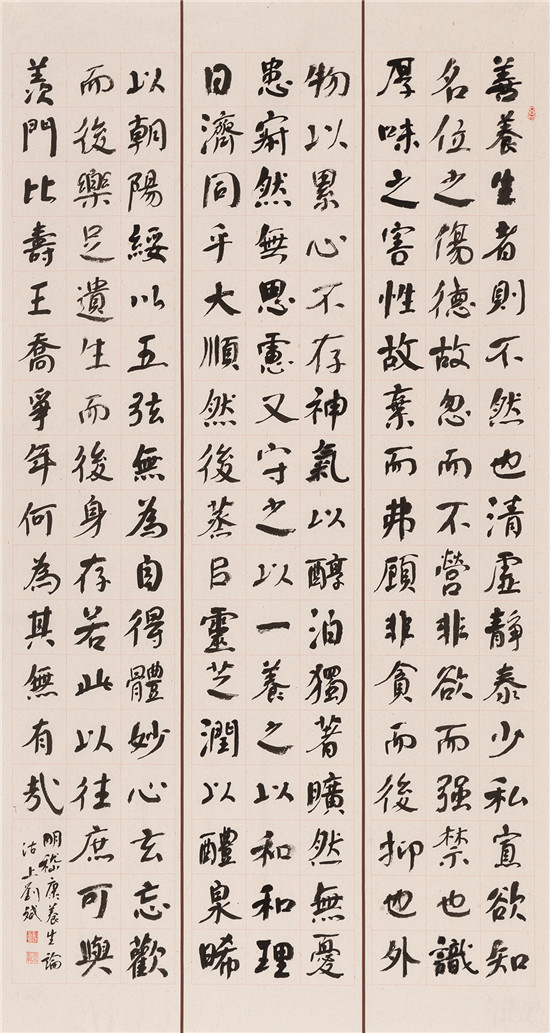 善養生者則不然也清虛靜泰少私寡欲知
名位之傷德故忽而不營非欲而强禁也識
厚味之害性故棄而弗顧非貪而後抑也外
物以累心不存神氣以醇泊獨著曠然無憂
患寂然無思慮又守之以一養之以和和理
日濟同乎大順然後蒸以靈芝潤以醴泉晞
以朝陽綏以五弦無為自得體妙心玄忘歡
而後樂足遺生而後身存若此以往庶可與
羨門比壽王喬爭年何為其無有哉
明嵇康養生論
沽上劉斌